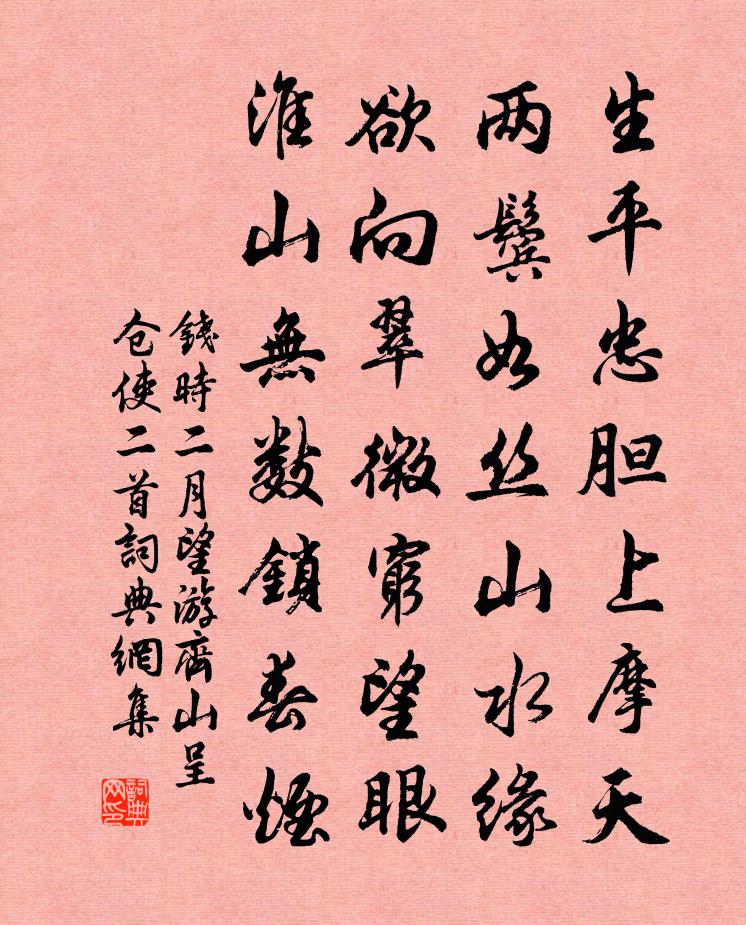 生平忠胆上摩天
两鬓如丝山水缘
欲向翠微穷望眼
淮山無数鎖春煙
錢時二月望游齊山呈
仓使二首詞典網集
詞典
网印